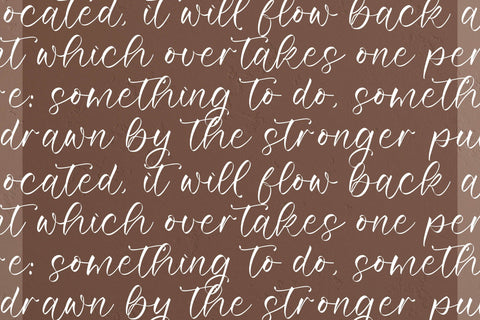 ocated, it will flow back a
t which overtakes one per
e: something to do, someth
drawn by the stronger pu
ocated, it will flow back a
t which overtakes one per
e: something to do, someth
drawn by the stronger pu